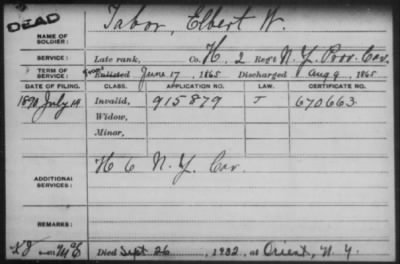 DEAD
NAME OF SOLDIER: Tabor, Elbert W.
SERVICE: Late rank, Co. H. 2 Reg't N. Y. Prov. Cav.
TERM OF SERVICE: Trans Enlisted June 17, 1865 Discharged Aug 9, 1865
DATE OF FILING. CLASS. APPLICATION NO. LAW. CERTIFICATE NO.
1890 July 14 Invalid, 915879 J 670663
Widow,
Minor,
ADDITIONAL SERVICES: H 6 N. Y. Cav.
REMARKS:
Died Sept 26, 1922, at Orient, N. Y.